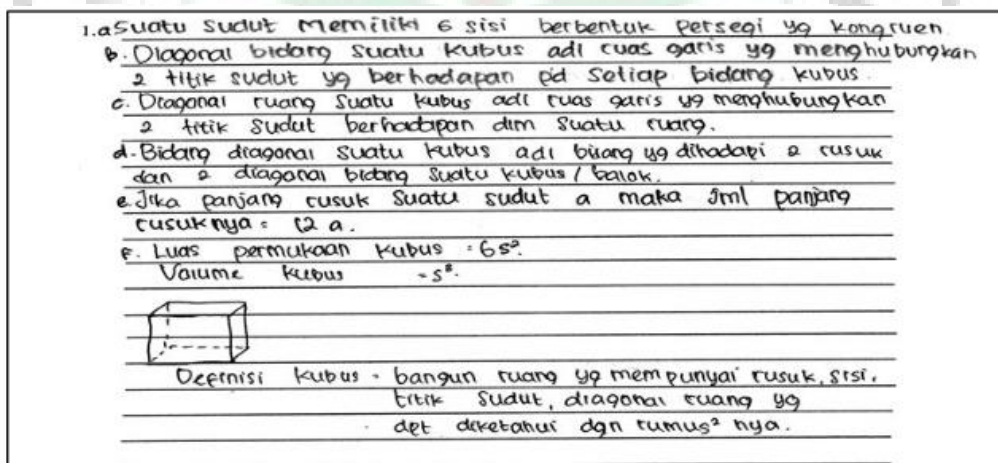 1.a Suatu sudut memiliki 6 sisi berbentuk persegi yg kongruen
b. Diagonal bidang suatu kubus adl ruas garis yg menghubungkan
2 titik sudut yg berhadapan pd setiap bidang kubus.
c. Diagonal ruang suatu kubus adl ruas garis yg menghubungkan
2 titik sudut berhadapan dlm suatu ruang.
d. Bidang diagonal suatu kubus adl bidang yg dihadapi 2 rusuk
dan 2 diagonal bidang suatu kubus / balok.
e. Jika panjang rusuk suatu sudut a maka jml panjang
rusuknya = 12 a.
F. Luas permukaan kubus = 6s².
Volume kubus = s³.
Definisi kubus = bangun ruang yg mempunyai rusuk, sisi,
titik sudut, diagonal ruang yg
dpt diketahui dgn rumus² nya.